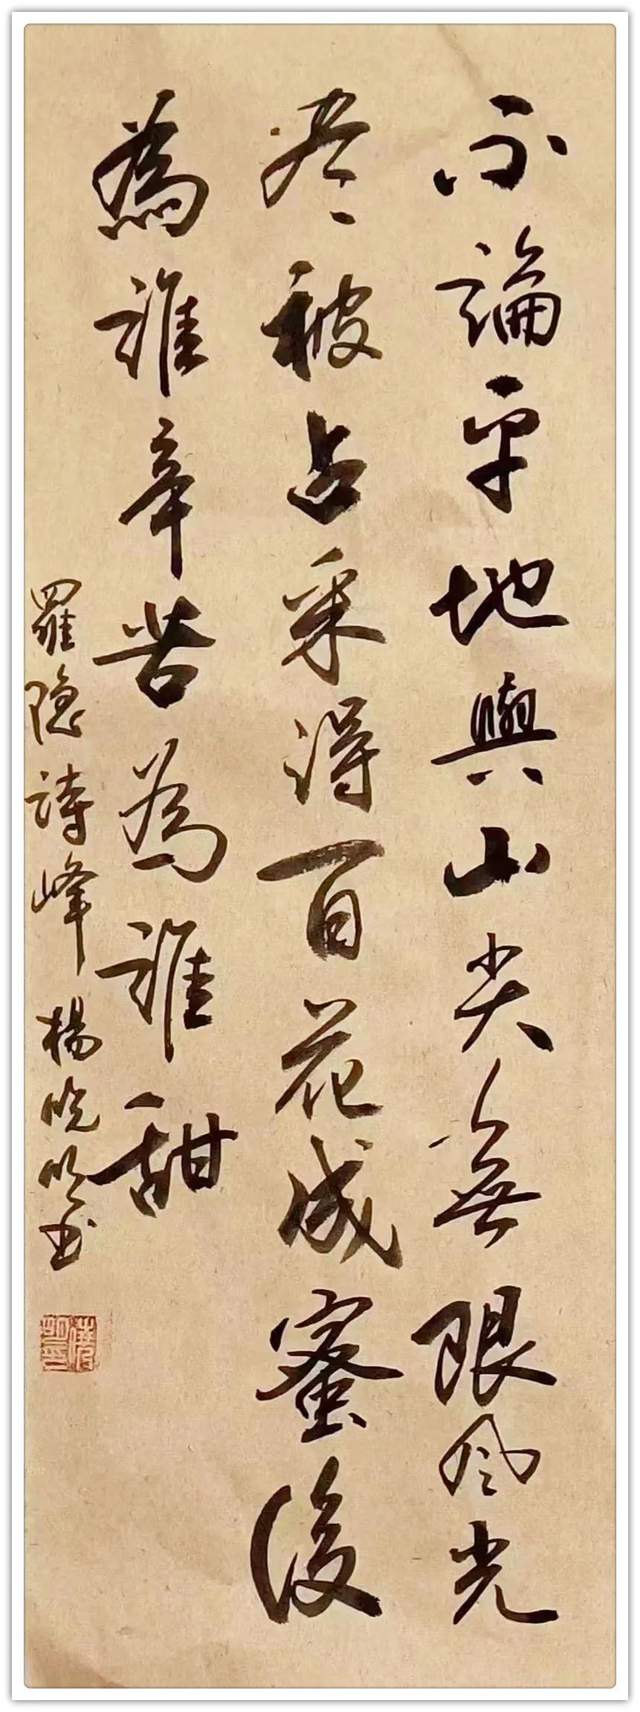 不論平地與山尖無限風光
尽被占采得百花成蜜後
為誰辛苦為誰甜
羅隐詩峰 楊晓明书